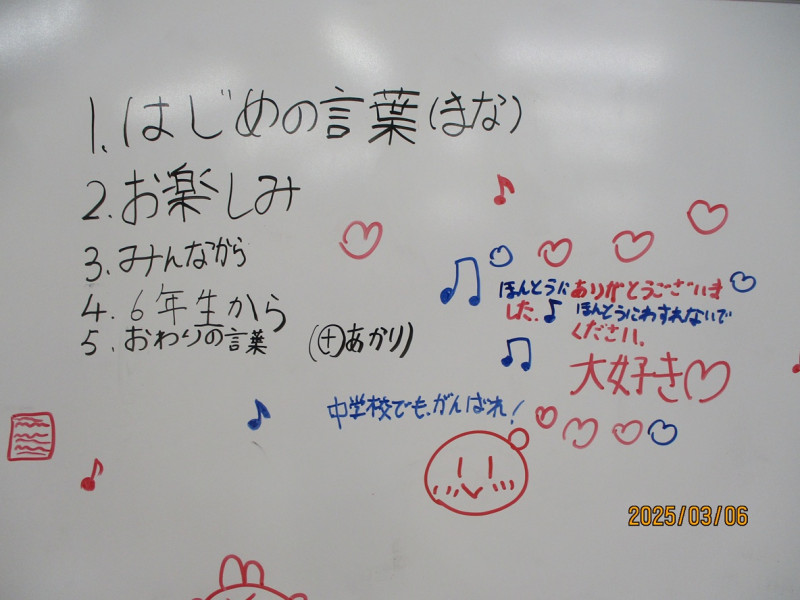 1. はじめの言葉(きな)
2. お楽しみ
3. みんなから
4. 6年生から
5. おわりの言葉 (あかり)
ほんとうにありがとうございま
した。ほんとうにわすれないで
ください。
大好き
中学校でも、がんばれ!
2025/03/06